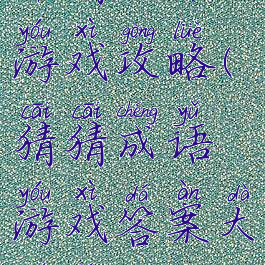 yóu xì gōng lüè
游戏攻略(
cāi cāi chéng yǔ
猜猜成语
yóu xì dá àn dà
游戏答案大